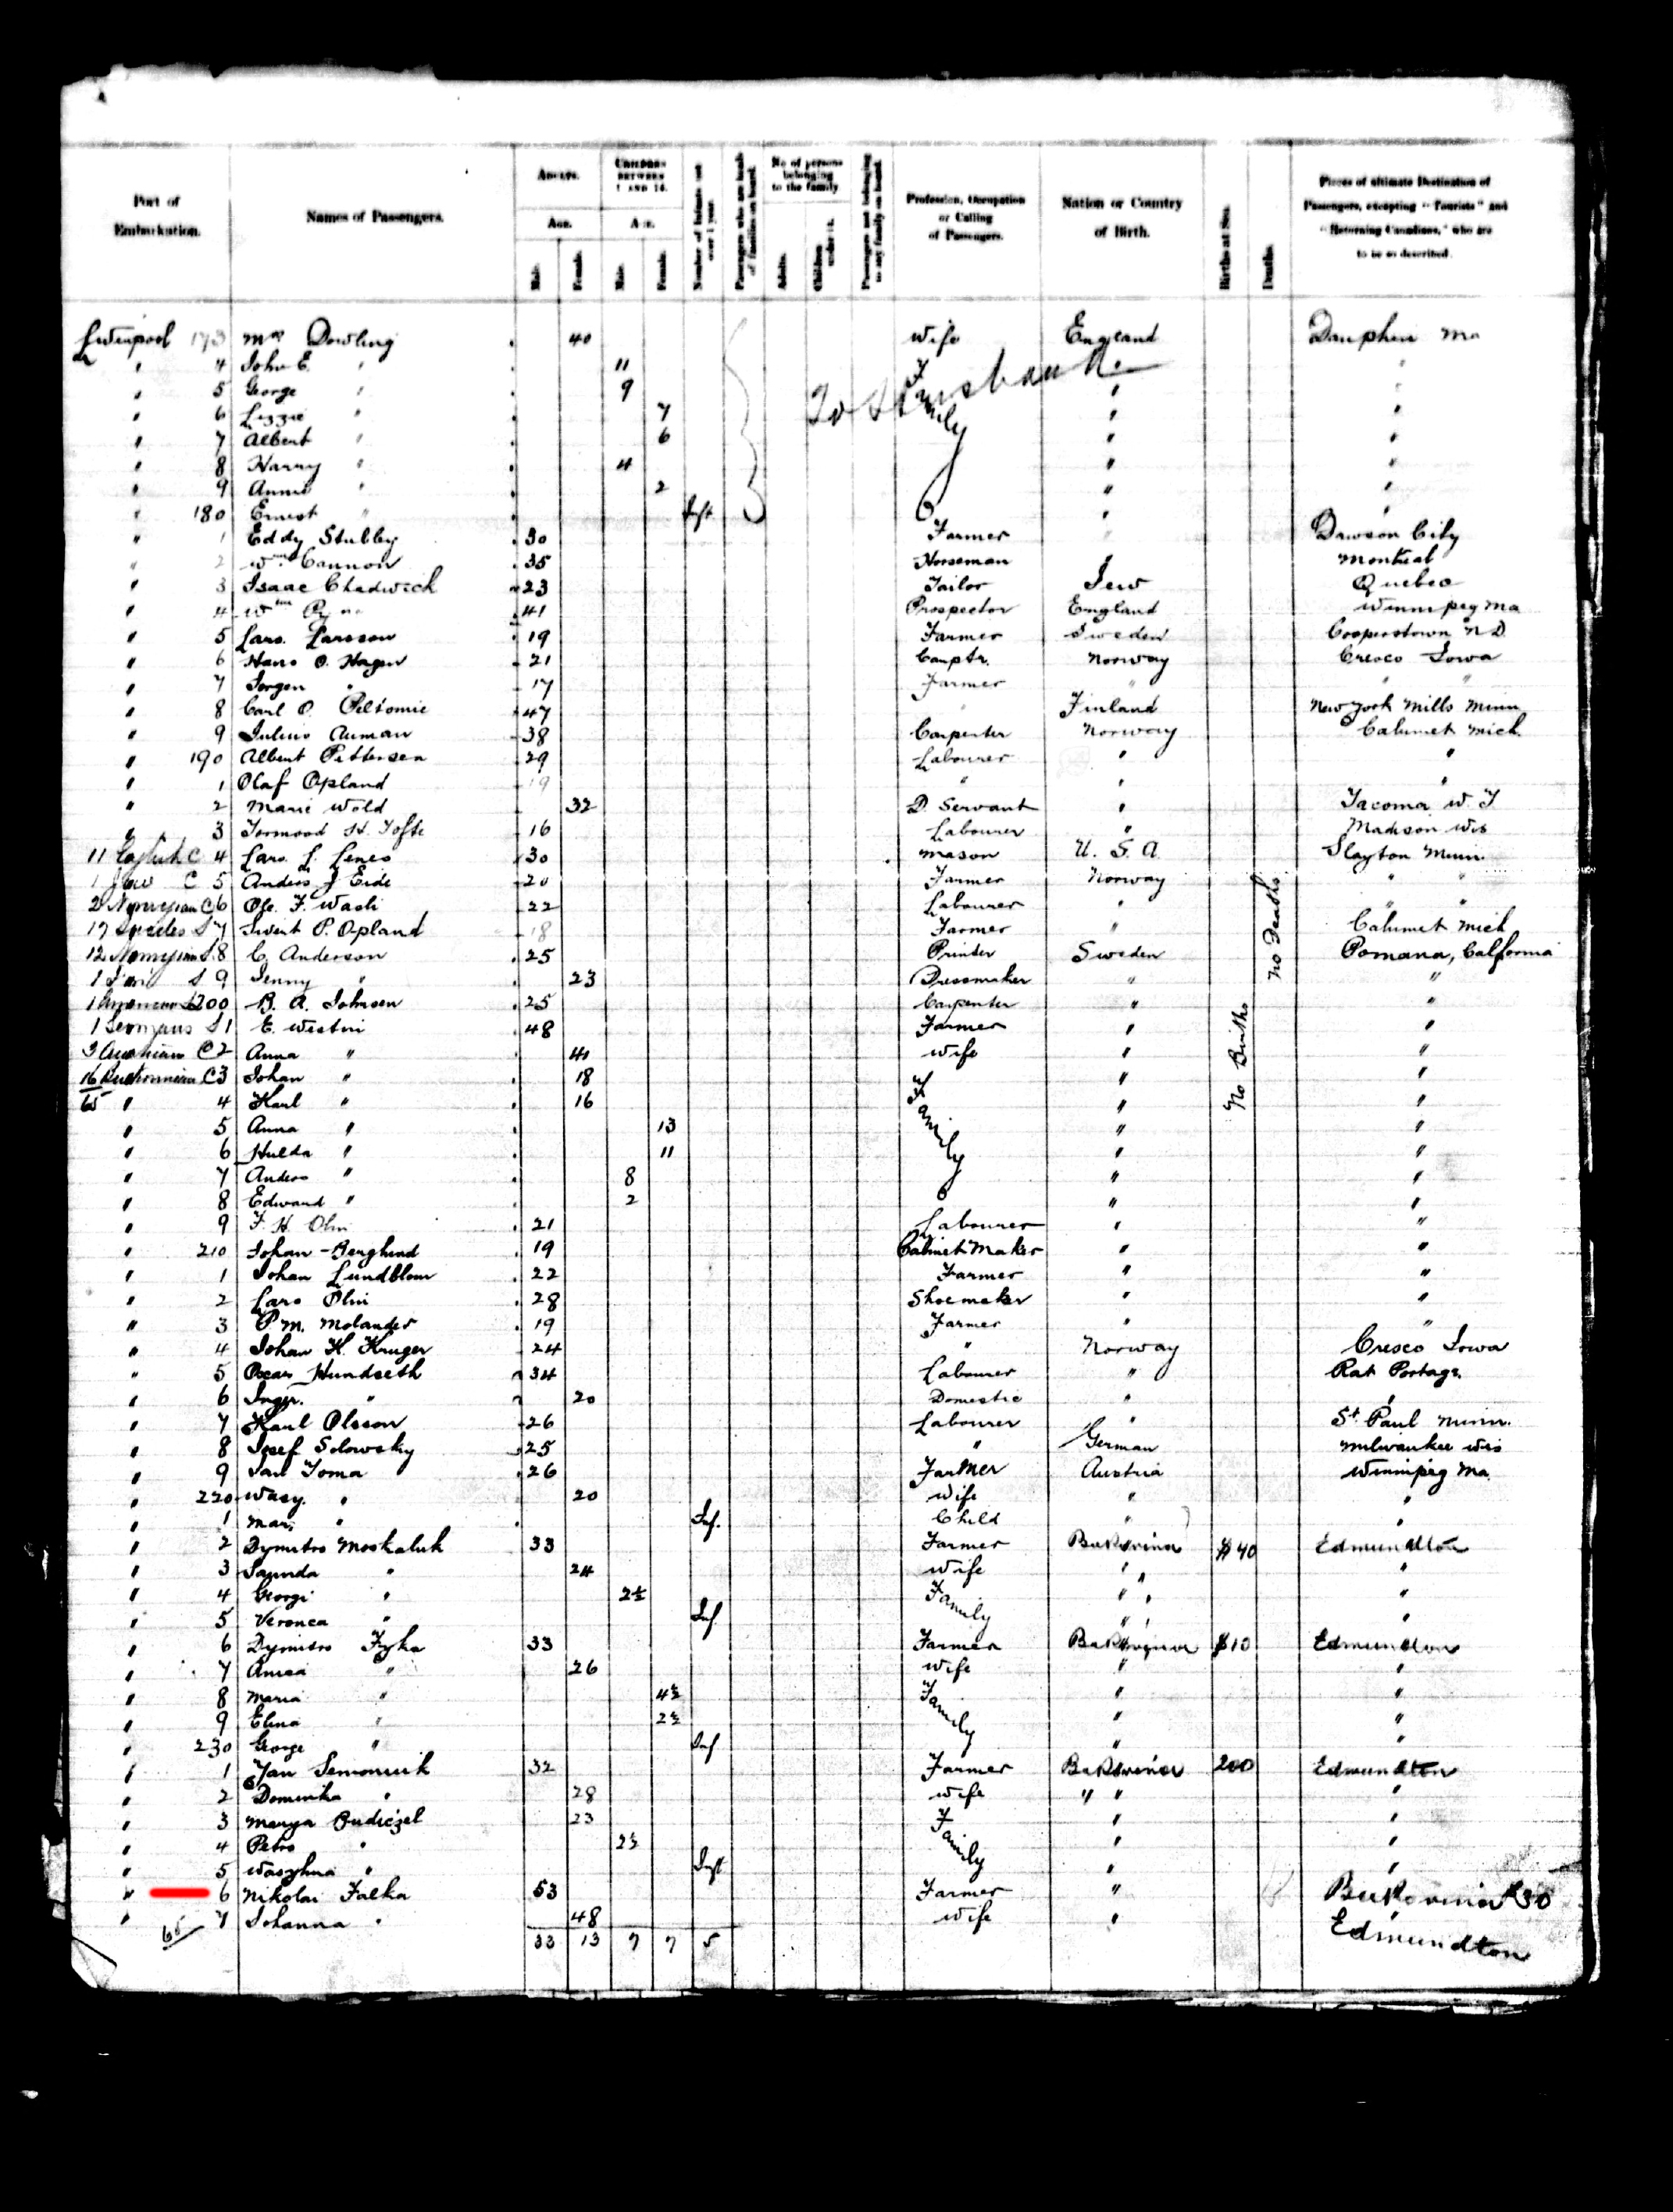 Port of Embarkation. Names of Passengers. Adults. Age. Male. Female. Children between 1 and 14. Age. Male. Female. Number of Infants not over 1 year. Passengers who are heads of families on board. No of persons belonging to the family. Adults. Children under 14. Passengers not belonging to any family on board. Profession, Occupation or Calling of Passengers. Nation or Country of Birth. Births at Sea. Deaths. Places of ultimate Destination of Passengers, excepting "Tourists" and "Returning Canadians," who are to be so described.
Liverpool 173 Mrs Dowling 40 Wife England Dauphin Ma
" 4 John E. " 11 To Husband " "
" 5 George " 9 Family " "
" 6 Lizzie " 7 " "
" 7 Albert " 6 " "
" 8 Harry " 4 " "
" 9 Annie " 2 " "
" 180 Ernest " Inft " "
" 1 Eddy Stubby 30 Farmer " Dawson City
" 2 Wm Cannon 35 Horseman " Montreal
" 3 Isaac Chadwick 23 Tailor Jew Quebec
" 4 Wm 41 Prospector England Winnipeg Ma
" 5 Lars. Larsson 19 Farmer Sweden Cooperstown N D
" 6 Hans O. Hagen 21 Carptr. Norway Cresco Iowa
" 7 Jorgen " 17 Farmer " " "
" 8 Carl O. Peltomie 47 " Finland New York Mills Minn
" 9 Julius Auman 38 Carpenter Norway Calumet Mich.
" 190 Albert Pettersen 29 Labourer " "
" 1 Olaf Opland 19 " " "
" 2 Marie Wold 32 D. Servant " Tacoma W. T
" 3 Tormood H. Tofte 16 Labourer " Madison Wis
11 English C 4 Lars. L. Lenes 30 Mason U. S. A. Slayton Minn.
1 Jew C 5 Anders J Eide 20 Farmer Norway " "
2 Norwegian C 6 Ole. F. Wasli 22 Labourer " " "
17 Swedes S 7 Sivert P. Opland 18 Farmer " Calumet Mich
12 Norwegian S. 8 C. Anderson 25 Printer Sweden Pomana, California
1 Fin S 9 Jenny " 23 Dressmaker " "
1 American S 200 B. A. Johnsen 25 Carpenter " "
1 Germans S 1 E. Westin 48 Farmer " "
3 Austrians C 2 Anna " 41 Wife " "
16 C 3 Johan " 18 Family " "
65 " 4 Karl " 16 " "
" 5 Anna " 13 " "
" 6 Hulda " 11 " "
" 7 Anders " 8 " "
" 8 Edward " 2 " "
No Births No Deaths
" 9 F. H. Olin 21 Labourer " "
" 210 Johan Berglund 19 Cabinet Maker " "
" 1 Johan Lundblom 22 Farmer " "
" 2 Lars Olin 28 Shoemaker " "
" 3 P. M. Molander 19 Farmer " "
" 4 Johan K. Kruger 24 " Norway Cresco Iowa
" 5 Oscar Hundseth 34 Labourer " Rat Portage.
" 6 Inger. " 20 Domestic " "
" 7 Karl Olsson 26 Labourer " St. Paul Minn.
" 8 Josef Solowsky 25 " German Milwaukee Wis
" 9 Jan Toma 26 Farmer Austria Winnipeg Ma.
" 220 Wasy. " 20 Wife " "
" 1 Mari " Inf. Child " "
" 2 Dymitro Moskaluk 33 Farmer Bukovina $40 Edmundton
" 3 " 24 Wife " "
" 4 Georgi " 2½ Family " "
" 5 Veronca " Inf. " "
" 6 Dymitro Fyka 33 Farmer Bukovina $10 Edmundton
" 7 " 26 Wife " "
" 8 Maria " 4½ Family " "
" 9 Elina " 2½ " "
" 230 George " Inf " "
" 1 Jan Semoniuk 32 Farmer Bukovina 200 Edmundton
" 2 Dominka " 28 Wife " " "
" 3 Marya Budiczel 23 Family " "
" 4 Petro " 2½ " "
" 5 Waszhna " Inft " "
" 6 Nikolai Falka 53 Farmer " Bukovina $30
" 7 Johanna " 48 Wife " Edmundton
65 33 13 7 7 5